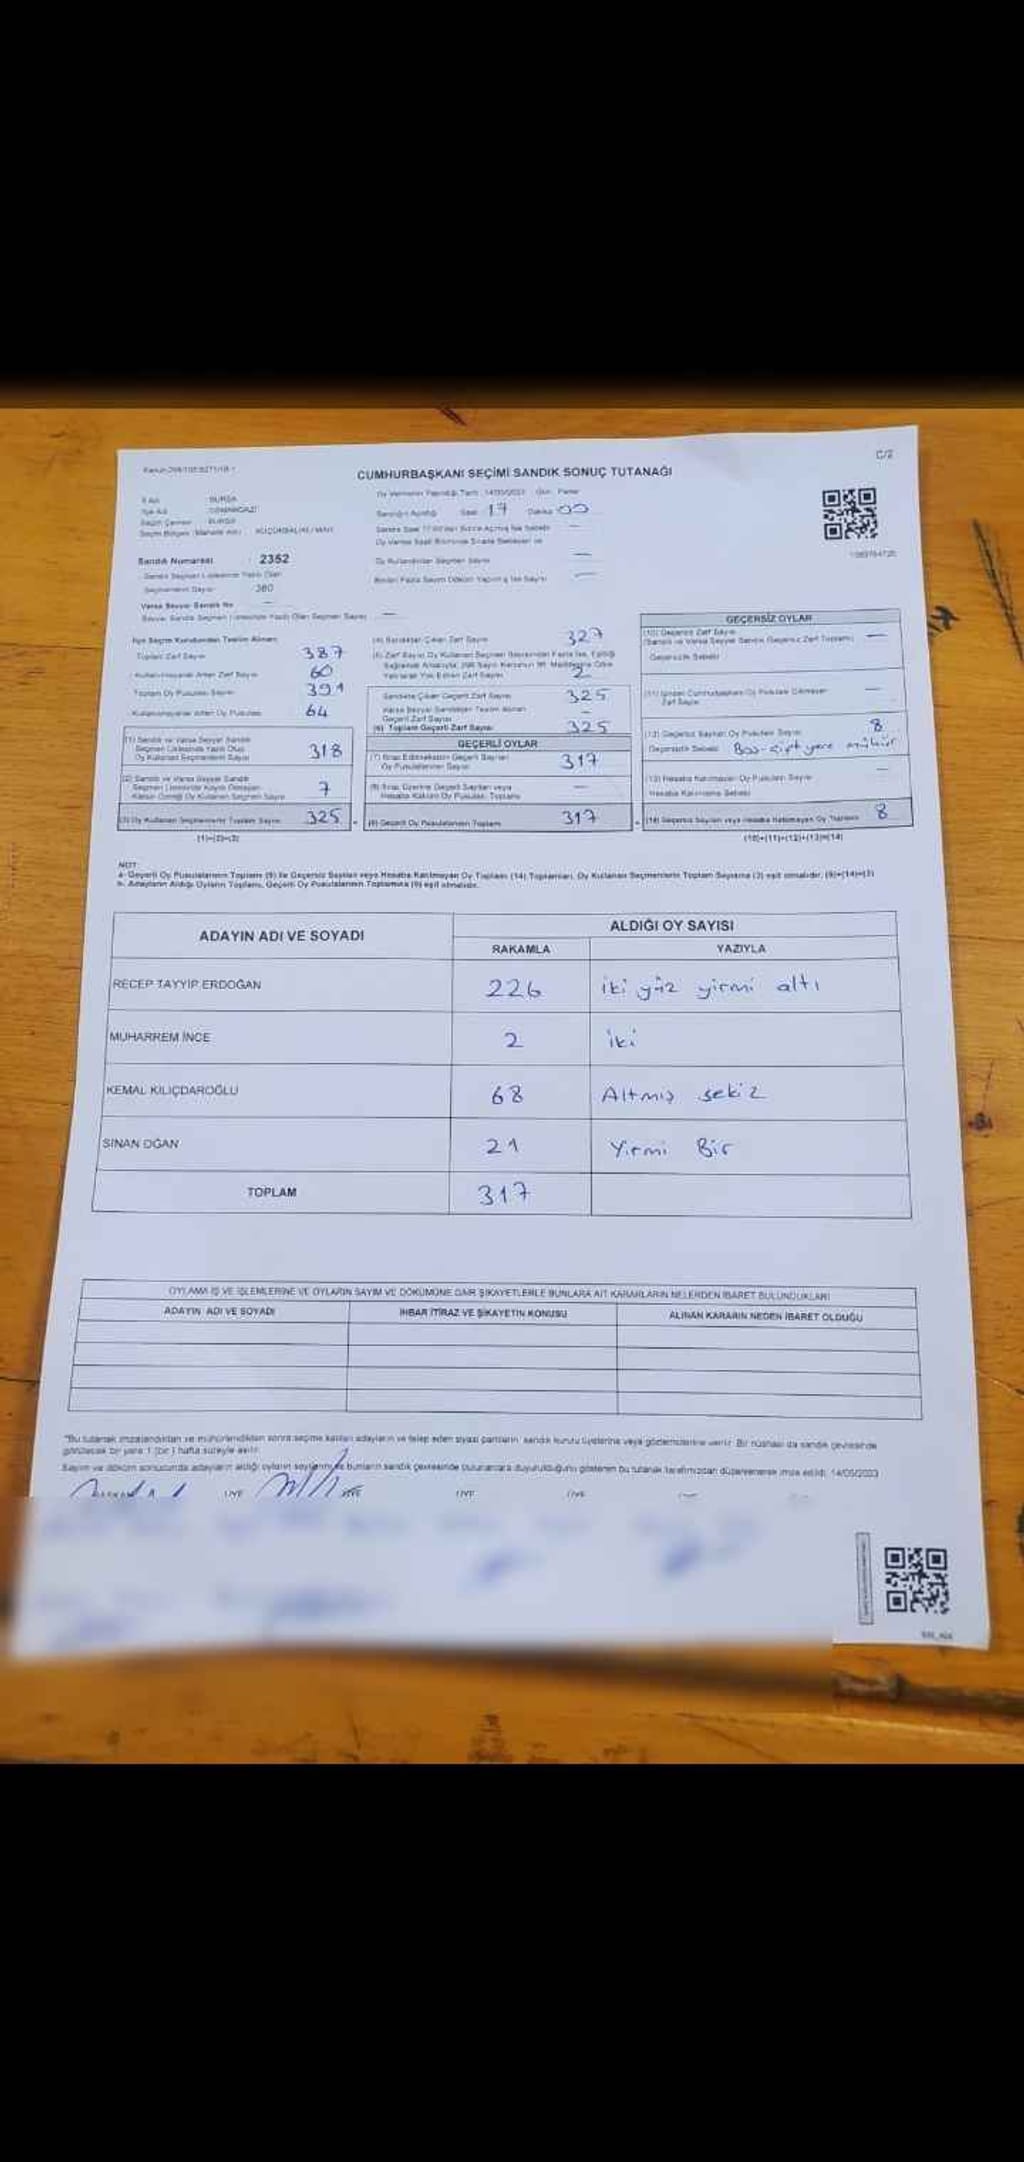 C/2
CUMHURBAŞKANI SEÇİMİ SANDIK SONUÇ TUTANAĞI
İl Adı : BURSA
Oy Vermenin Yapıldığı Tarih : 14/05/2023 Gün : Pazar
İlçe Adı : OSMANGAZİ
Sandığın Açıldığı Saat 17 Dakika 00
Seçim Çevresi : BURSA
Sandık Numarası : 2352
Sandık Seçmen Listesinde Yazılı Olan
Seçmenlerin Sayısı : 380
Varsa Seyyar Sandık No —
Seyyar Sandık Seçmen Listesinde Yazılı Olan Seçmen Sayısı —
İlçe Seçim Kurulundan Teslim Alınan;
Toplam Zarf Sayısı 387
Kullanılmayarak Artan Zarf Sayısı 60
Toplam Oy Pusulası Sayısı 391
Kullanılmayarak Artan Oy Pusulası 64
(1) Sandık ve Varsa Seyyar Sandık
Seçmen Listesinde Yazılı Olup
Oy Kullanan Seçmenlerin Sayısı 318
7
(3) Oy Kullanan Seçmenlerin Toplam Sayısı 325
(1)+(2)=(3)
(4) Sandıktan Çıkan Zarf Sayısı 327
2
Sandıkta Çıkan Geçerli Zarf Sayısı 325
Varsa Seyyar Sandıktan Teslim Alınan
Geçerli Zarf Sayısı —
(6) Toplam Geçerli Zarf Sayısı 325
GEÇERLİ OYLAR
(7) İtiraz Edilmeksizin Geçerli Sayılan
Oy Pusulalarının Sayısı 317
(8) İtiraz Üzerine Geçerli Sayılan veya
Hesaba Katılan Oy Pusulası Toplamı —
(9) Geçerli Oy Pusulalarının Toplamı 317
GEÇERSİZ OYLAR
(10) Geçersiz Zarf Sayısı
(Sandık ve Varsa Seyyar Sandık Geçersiz Zarf Toplamı) —
Geçersizlik Sebebi
(11) İçinden Cumhurbaşkanı Oy Pusulası Çıkmayan
Zarf Sayısı —
(12) Geçersiz Sayılan Oy Pusulası Sayısı 8
Geçersizlik Sebebi Boş-çift yere mühür
(13) Hesaba Katılmayan Oy Pusulası Sayısı —
Hesaba Katılmama Sebebi
(14) Geçersiz Sayılan veya Hesaba Katılmayan Oy Toplamı 8
(10)+(11)+(12)+(13)=(14)
NOT:
a- Geçerli Oy Pusulalarının Toplamı (9) ile Geçersiz Sayılan veya Hesaba Katılmayan Oy Toplamı (14) Toplamları, Oy Kullanan Seçmenlerin Toplam Sayısına (3) eşit olmalıdır. (9)+(14)=(3)
b- Adayların Aldığı Oyların Toplamı, Geçerli Oy Pusulalarının Toplamına (9) eşit olmalıdır.
ADAYIN ADI VE SOYADI
ALDIĞI OY SAYISI
RAKAMLA YAZIYLA
RECEP TAYYİP ERDOĞAN 226 iki yüz yirmi altı
MUHARREM İNCE 2 iki
KEMAL KILIÇDAROĞLU 68 Altmış sekiz
SİNAN OĞAN 21 Yirmi Bir
TOPLAM 317
OYLAMA İŞ VE İŞLEMLERİNE VE OYLARIN SAYIM VE DÖKÜMÜNE DAİR ŞİKAYETLERLE BUNLARA AİT KARARLARIN NELERDEN İBARET BULUNDUKLARI
ADAYIN ADI VE SOYADI İHBAR İTİRAZ VE ŞİKAYETİN KONUSU ALINAN KARARIN NEDEN İBARET OLDUĞU
*Bu tutanak imzalandıktan ve mühürlendikten sonra seçime katılan adayların ve talep eden siyasi partilerin sandık kurulu üyelerine veya gözlemcilerine verilir. Bir nüshası da sandık çevresinde
görülecek bir yere 1 (bir) hafta süreyle asılır.
Sayım ve döküm sonucunda adayların aldığı oyların sayılarını ve bunların sandık çevresinde bulunanlara duyurulduğunu gösteren bu tutanak tarafımızdan düzenlenerek imza edildi. 14/05/2023
BAŞKAN ÜYE ÜYE ÜYE ÜYE